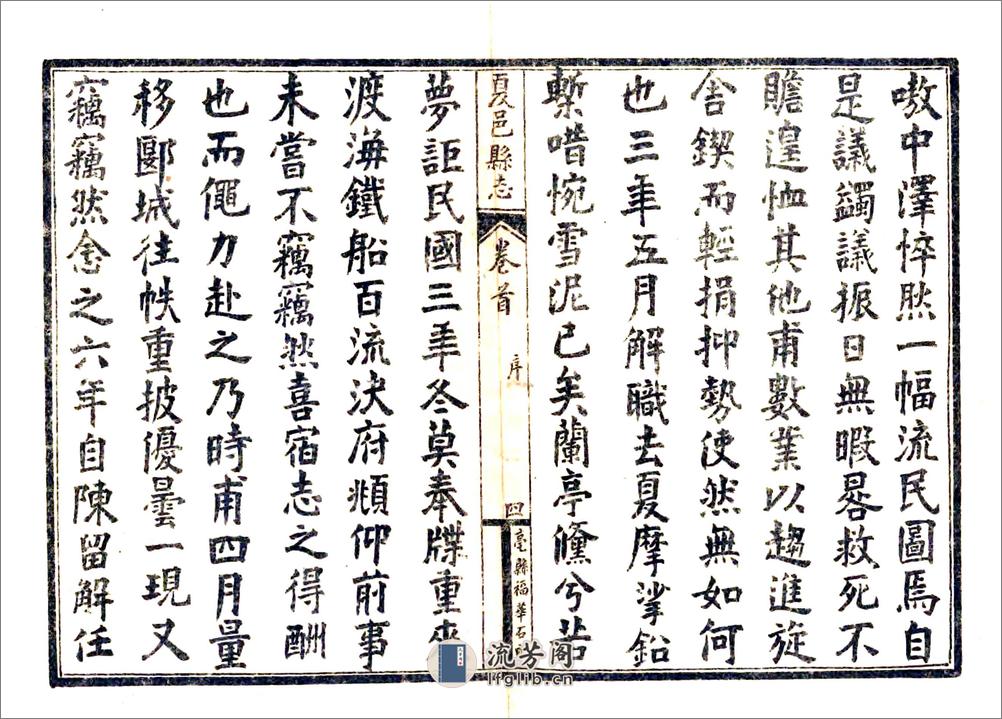 嗷中澤悴然一幅流民圖焉自
是議蠲議振日無暇晷救死不
贍遑恤其他甫數業以趨進旋
舍鍥而輕捐抑勢使然無如何
也三年五月解職去夏摩挲鉛
槧唶惋雪泥已矣蘭亭儵兮茗
夏邑縣志
卷首
序
四
亳縣福華石
夢詎民國三年冬莫奉牒重來
渡海鐵船百流決府頫仰前事
未嘗不竊竊然喜宿志之得酬
也而僶力赴之乃時甫四月量
移郾城往帙重披優曇一現又
竊竊然舍之六年自陳留解任
流芳阁
lfglib.cn